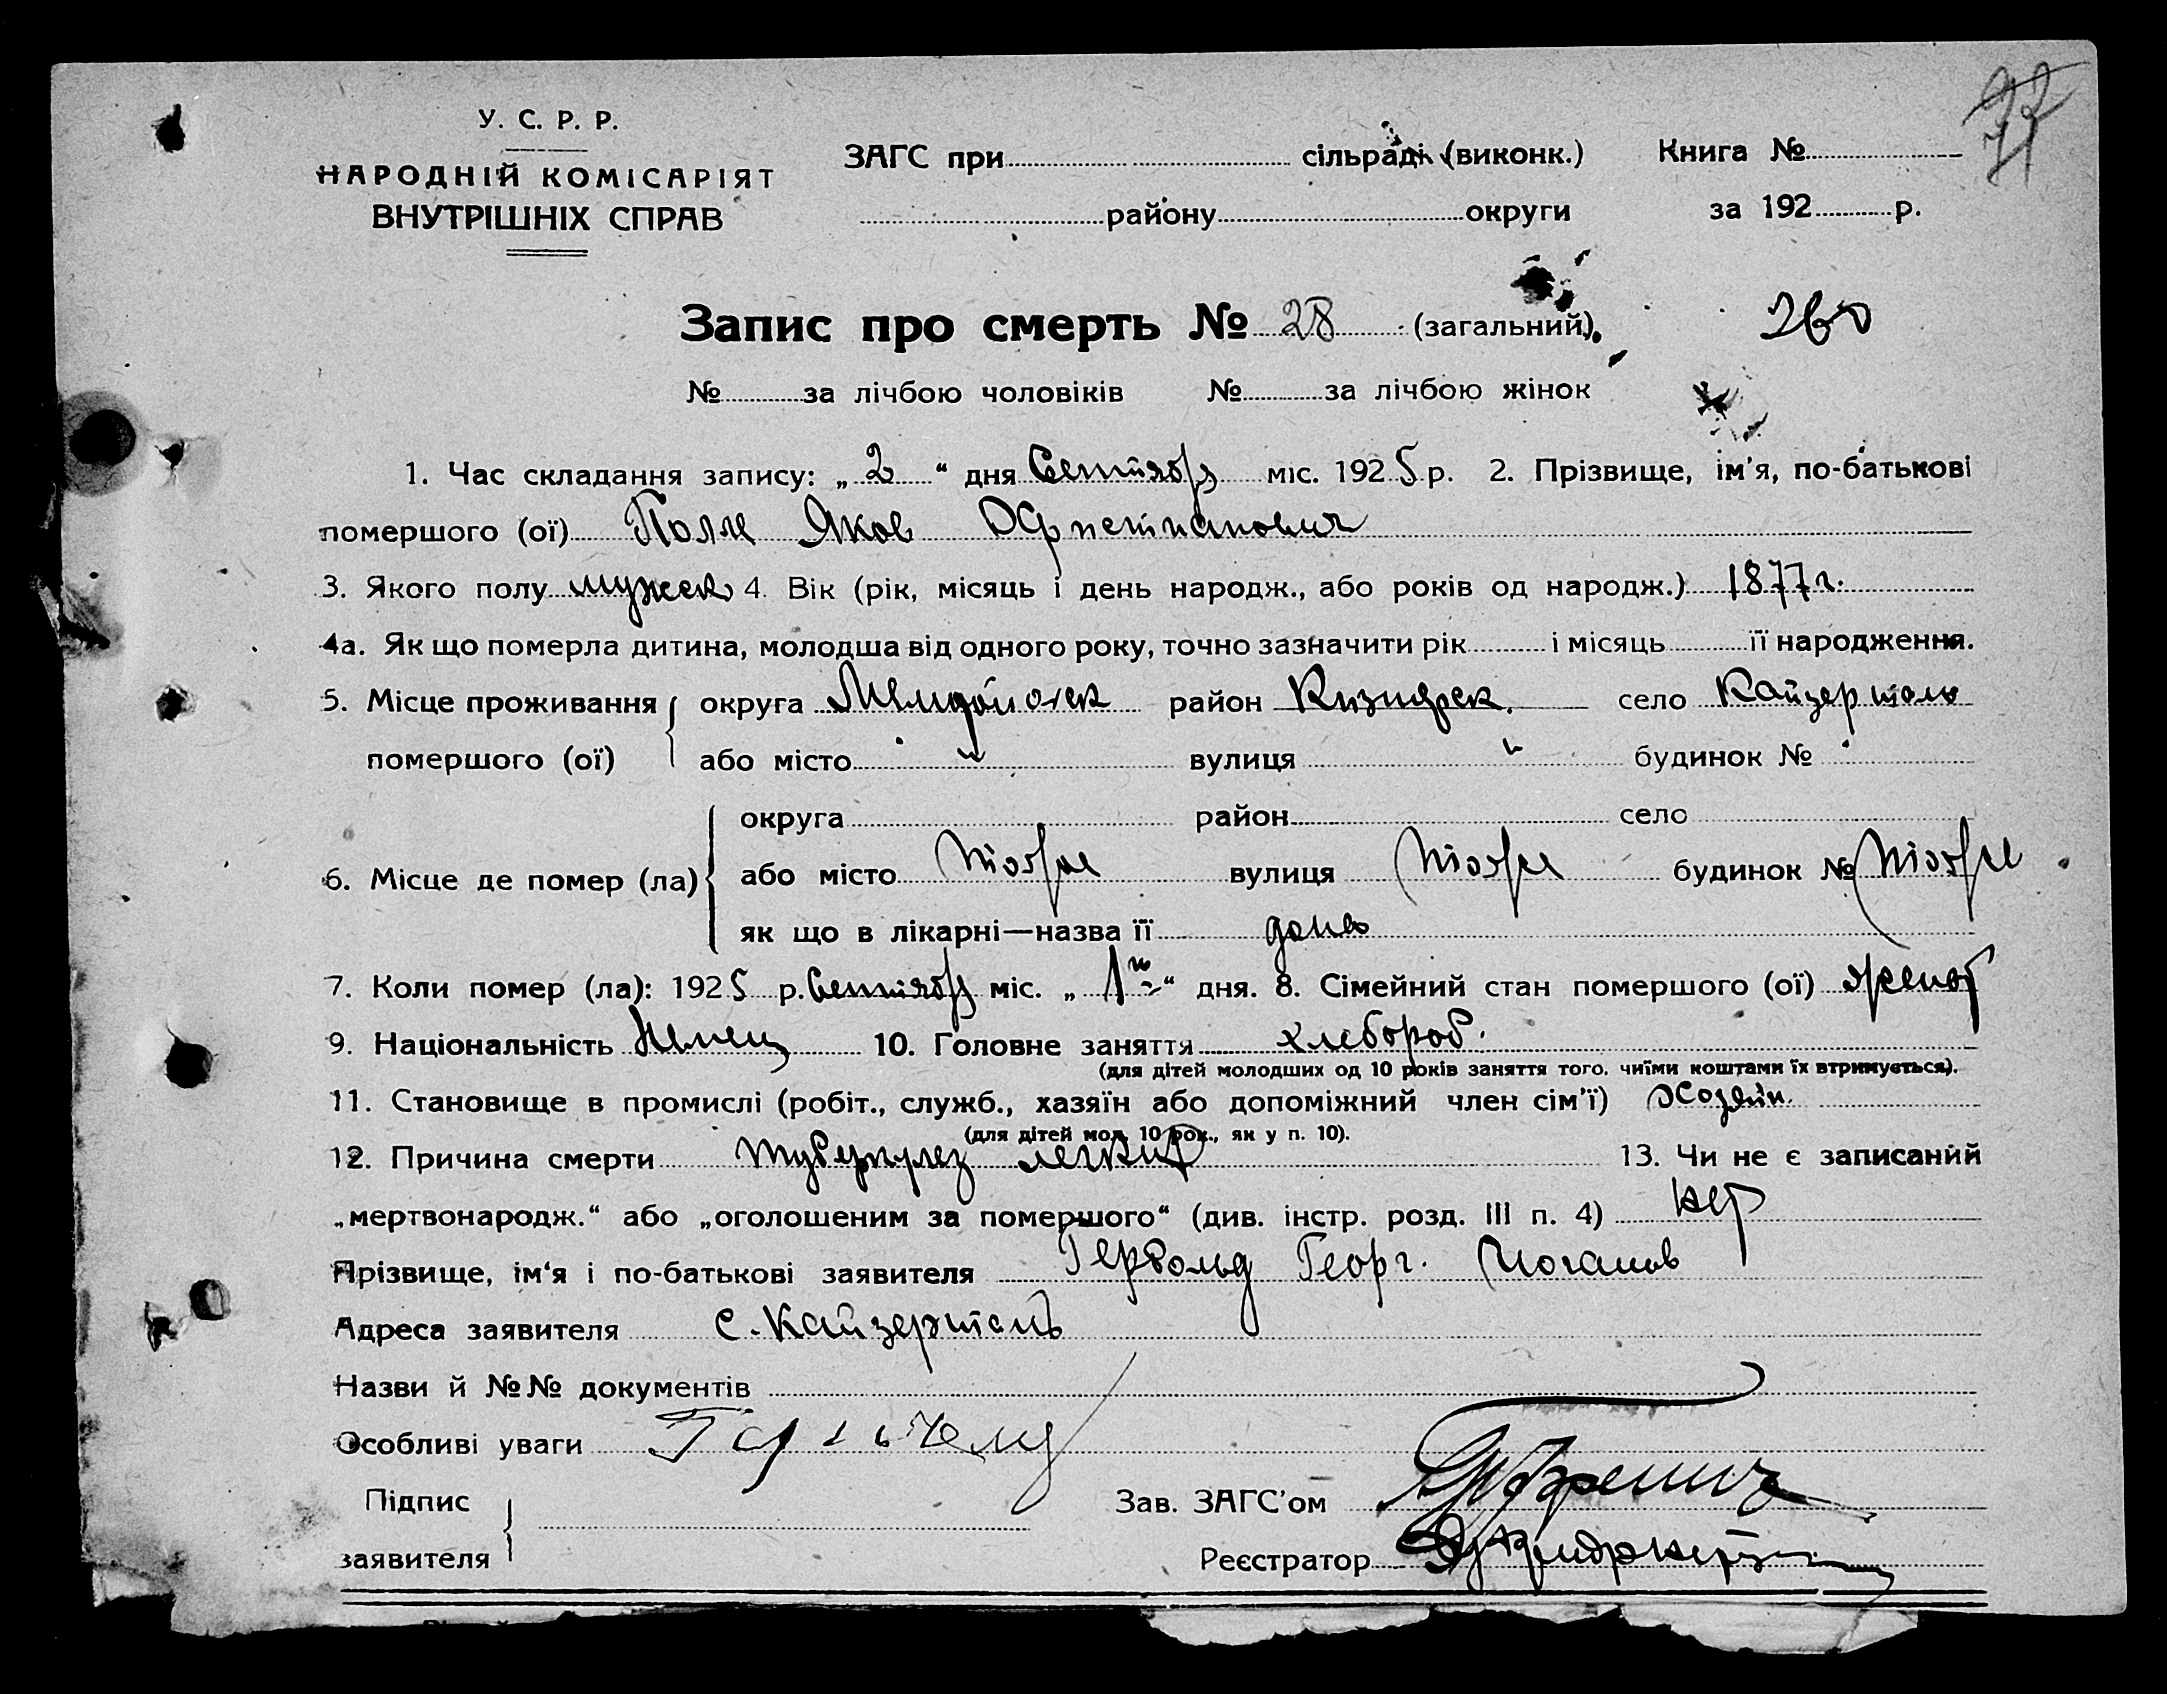 У. С. Р. Р.
НАРОДНІЙ КОМІСАРІЯТ
ВНУТРІШНІХ СПРАВ
ЗАГС при сільраді (виконк.) Книга №
району округи за 192 р.
Запис про смерть № 28 (загальний)
№ за лічбою чоловіків № за лічбою жінок
1. Час складання запису: „2“ дня Сентября міс. 1925 р. 2. Прізвище, ім'я, по-батькові
помершого (ої) Яков
3. Якого полу мужск 4. Вік (рік, місяць і день народж., або років од народж.) 1877 г.
4а. Як що померла дитина, молодша від одного року, точно зазначити рік і місяць її народження.
5. Місце проживання округа район село Кайзерталь
помершого (ої) або місто „ вулиця „ будинок № „
округа район село
6. Місце де помер (ла) або місто вулиця будинок №
як що в лікарні—назва її дома
7. Коли помер (ла): 1925 р. Сентября міс. „1го“ дня. 8. Сімейний стан помершого (ої) женат
9. Національність Немец 10. Головне заняття хлебороб.
(для дітей молодших од 10 років заняття того, чиїми коштами їх втримується).
11. Становище в промислі (робіт., служб., хазяїн або допоміжний член сім'ї) Хозяин.
(для дітей мол. 10 рок., як у п. 10).
12. Причина смерти туберкулез легких 13. Чи не є записаний
„мертвонародж.“ або „оголошеним за помершого“ (див. інстр. розд. III п. 4) нет
Прізвище, ім'я і по-батькові заявителя Гербольд Георг. Иоганов
Адреса заявителя с. Кайзерталь
Назви й №№ документів
Особливі уваги
Підпис
заявителя
Зав. ЗАГС'ом
Реєстратор